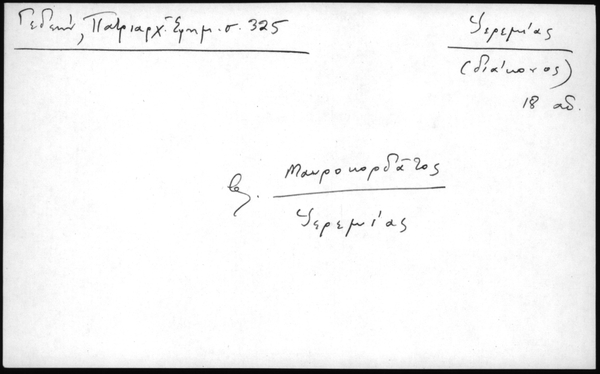 Γεδεών, Πατριαρχ. Εφημ. σ. 325
Ἱερεμίας
(διάκονος)
18 αἰ.
βλ. Μαυροκορδᾶτος
Ἱερεμίας